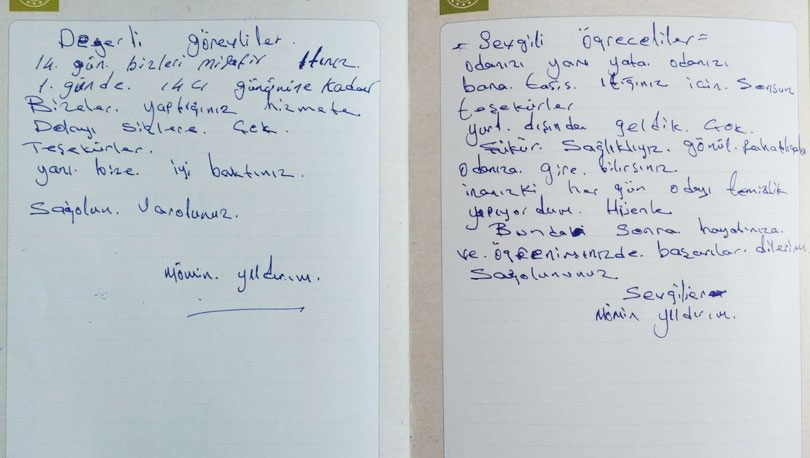 Değerli göreviler.
14. gün. bizleri misafir Ttiniz
1. günde. 14 cı gününine Kadar
Bizeler. yaptığınız hizmete
Dolayı sizlere. Çok.
Teşekürler.
yani bize. iyi baktınız.
Sağolun. Varolunuz.
Mömin. yıldırım.
Sevgili Öğreceliler=
odanızı yani yata. odanızı
bana. tasis. ttiğiniz icin. Sonsuz
teşekürler
yurt. dışından geldik. Çok.
Şükür. Sağlıklıyız. gönül. Rahatlığıyla
odanıza. gire. bilirsiniz.
inanızki her gün odayı temizlik
yapıyordum. Hijenle
Bundan Sonra hayatınıza.
ve. öğrenimsinizde. başarılar. dilerim
Sağolununuz
Sevgilier
Mömin yıldırım.